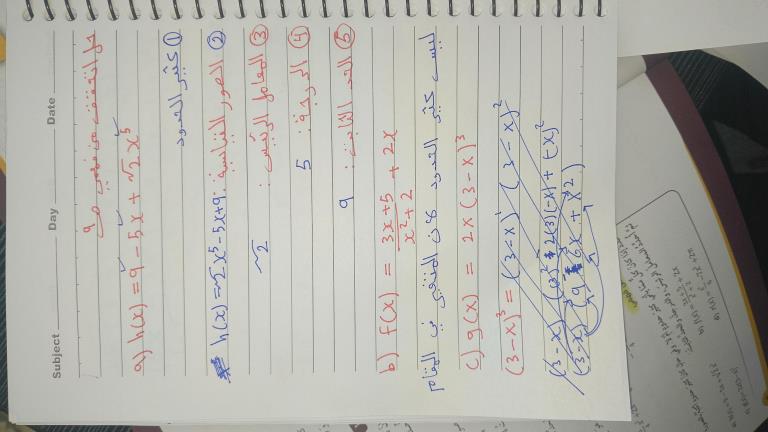 Subject Day Date
حل التحقق من فهمي ص 9
a) h(x) = 9 - 5x + √2 x⁵
① كثير الحدود
② الصور القياسية: h(x) = √2 x⁵ - 5x + 9
③ المعامل الرئيس: √2
④ الدرجة: 5
⑤ الحد الثابت: 9
b) f(x) = (3x + 5)/(x² + 2) + 2x
ليس كثير الحدود لأن المتغير في المقام
c) g(x) = 2x (3 - x)³
(3 - x)³ = (3 - x)¹ (3 - x)²
(3 - x) (3² + 2(3)(-x) + (-x)²
(3 - x) (9 - 6x + x²)